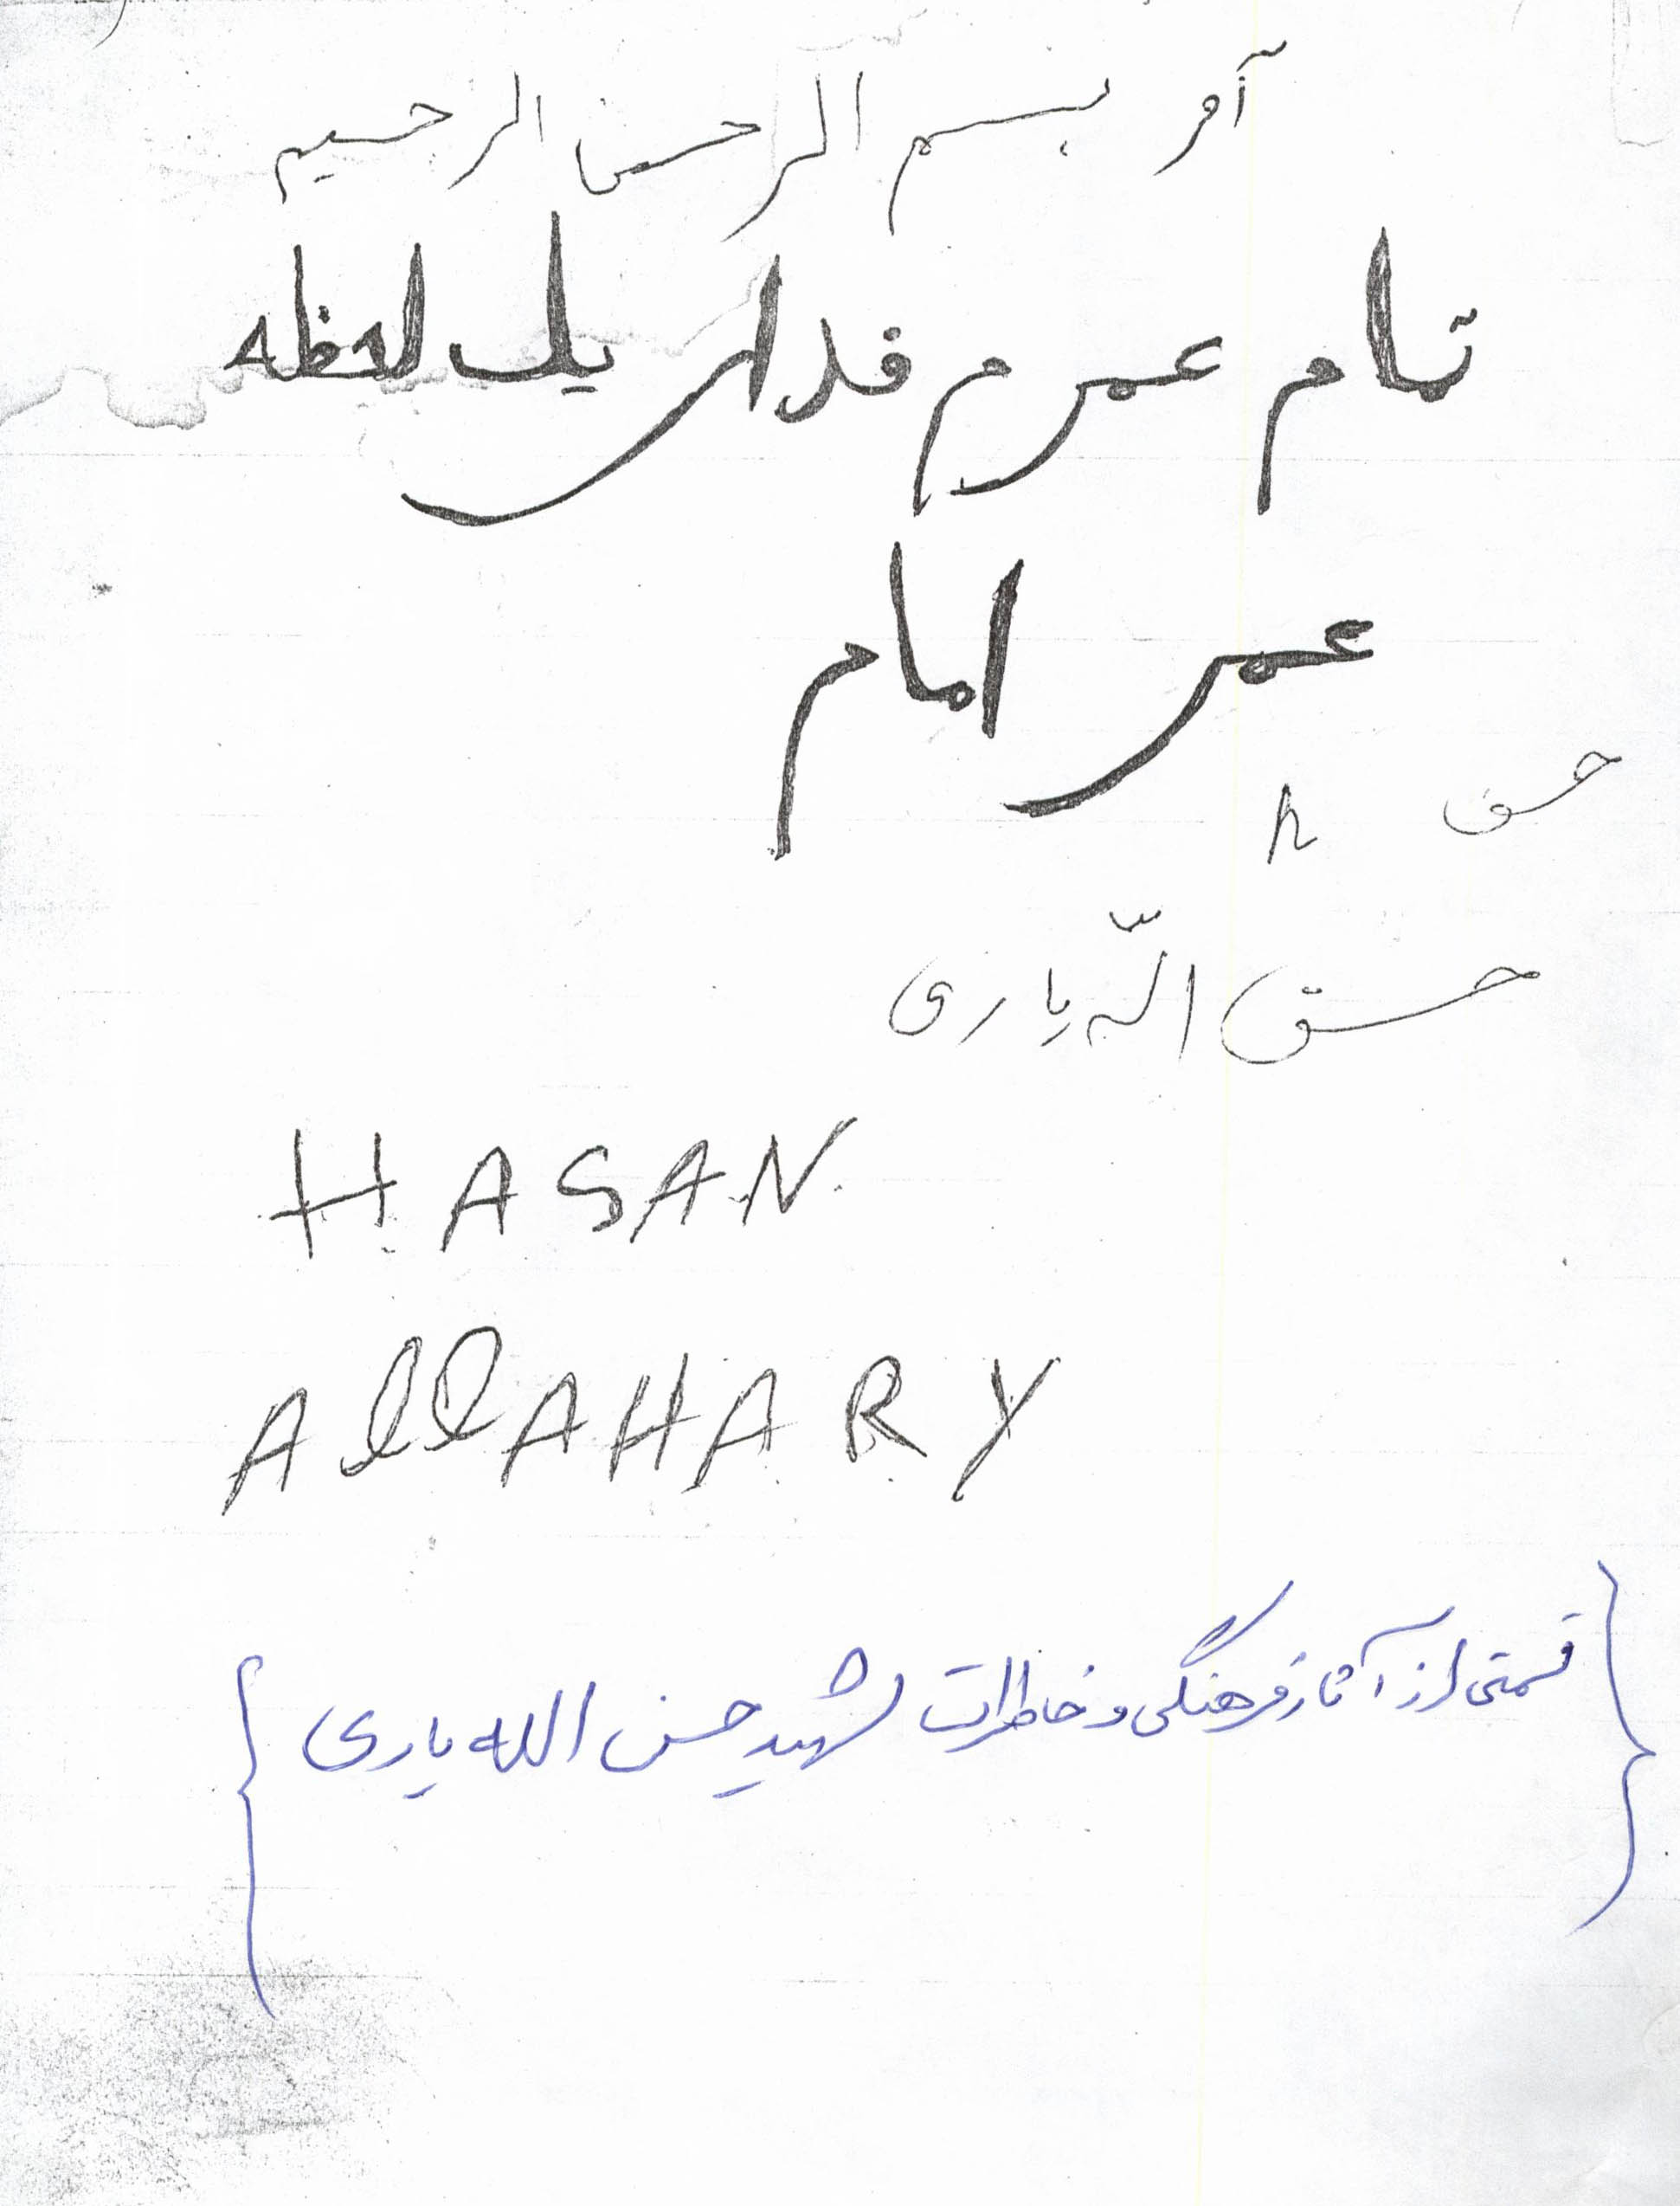 بسم الرحمن الرحیم
تمام عمرم فدای یک لحظه
عمر امام
حسن
حسن اللّه یاری
HASAN
AllAHARY
{قسمتی از آثار فرهنگی و خاطرات شهید حسن الله یاری}